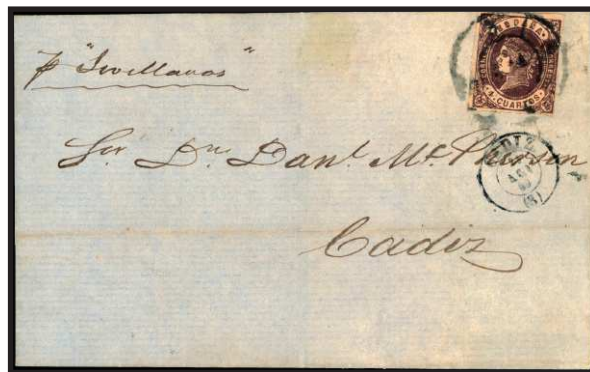 p "Sevillanos"
4 CUARTOS
Sor Dn Danl Mc Pherson
Cadiz